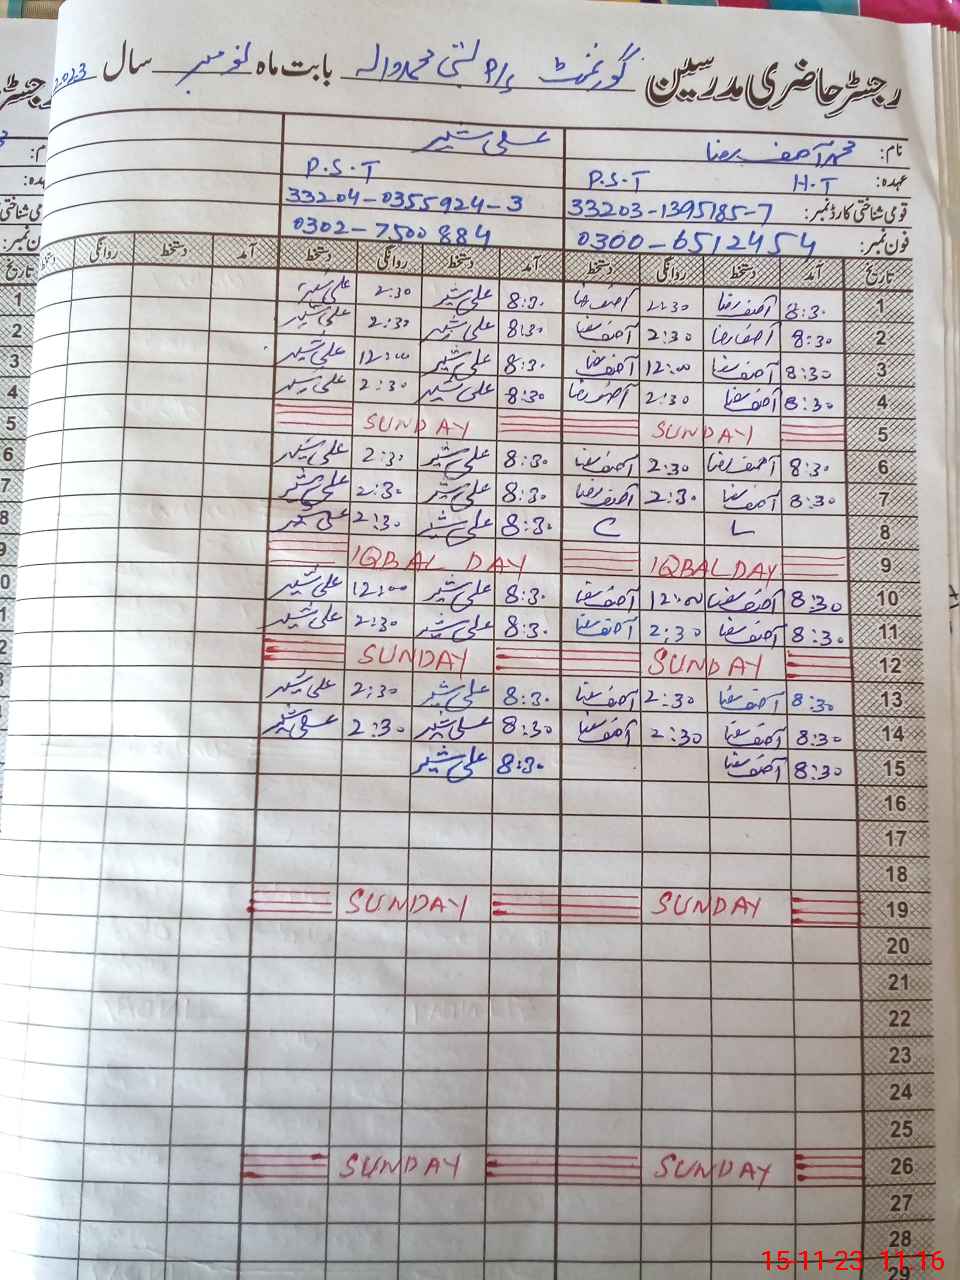 رجسٹر حاضری مدرسین گورنمنٹ P/S بستی محمد والہ بابت ماہ نومبر سال 2023
نام: محمد آصف رضا علی شیر
عہدہ: H.T P.S.T P.S.T
قومی شناختی کارڈ نمبر: 33203-1395185-7 33204-0355924-3
فون نمبر: 0300-6512454 0302-7500884
تاریخ آمد دستخط روانگی دستخط آمد دستخط روانگی دستخط آمد دستخط روانگی
1 8:30 آصف رضا 2:30 آصف رضا 8:30 علی شیر 2:30 علی شیر
2 8:30 آصف رضا 2:30 آصف رضا 8:30 علی شیر 2:30 علی شیر
3 8:30 آصف رضا 12:00 آصف رضا 8:30 علی شیر 12:00 علی شیر
4 8:30 آصف رضا 2:30 آصف رضا 8:30 علی شیر 2:30 علی شیر
5 SUNDAY SUNDAY
6 8:30 آصف رضا 2:30 آصف رضا 8:30 علی شیر 2:30 علی شیر
7 8:30 آصف رضا 2:30 آصف رضا 8:30 علی شیر 2:30 علی شیر
8 L C 8:30 علی شیر 2:30 علی شیر
9 IQBAL DAY IQBAL DAY
10 8:30 آصف رضا 12:00 آصف رضا 8:30 علی شیر 12:00 علی شیر
11 8:30 آصف رضا 2:30 آصف رضا 8:30 علی شیر 2:30 علی شیر
12 SUNDAY SUNDAY
13 8:30 آصف رضا 2:30 آصف رضا 8:30 علی شیر 2:30 علی شیر
14 8:30 آصف رضا 2:30 آصف رضا 8:30 علی شیر 2:30 علی شیر
15 8:30 آصف رضا 8:30 علی شیر
16
17
18
19 SUNDAY SUNDAY
20
21
22
23
24
25
26 SUNDAY SUNDAY
27
28
29
15-11-23 11:16